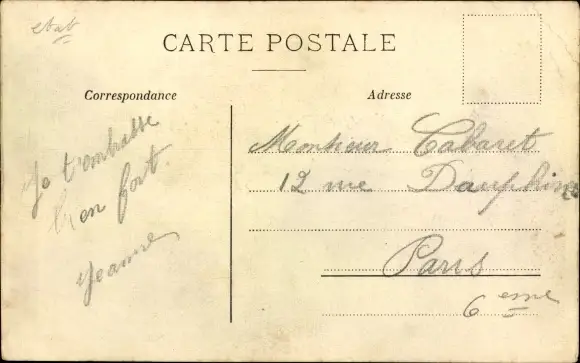 etat
CARTE POSTALE
Correspondance
Adresse
Je t'embrasse
bien fort
Jeanne
Monsieur Cabaret
12 rue Dauphine
Paris
6eme